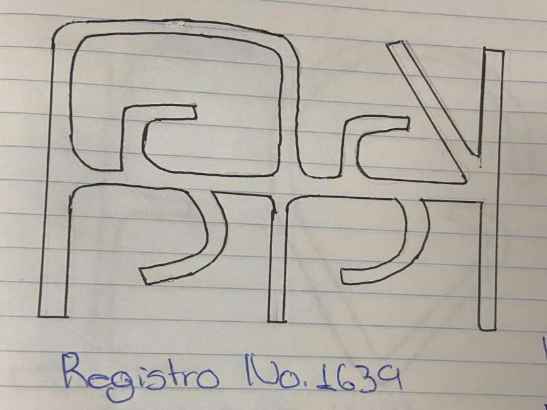 Registro No. 1639